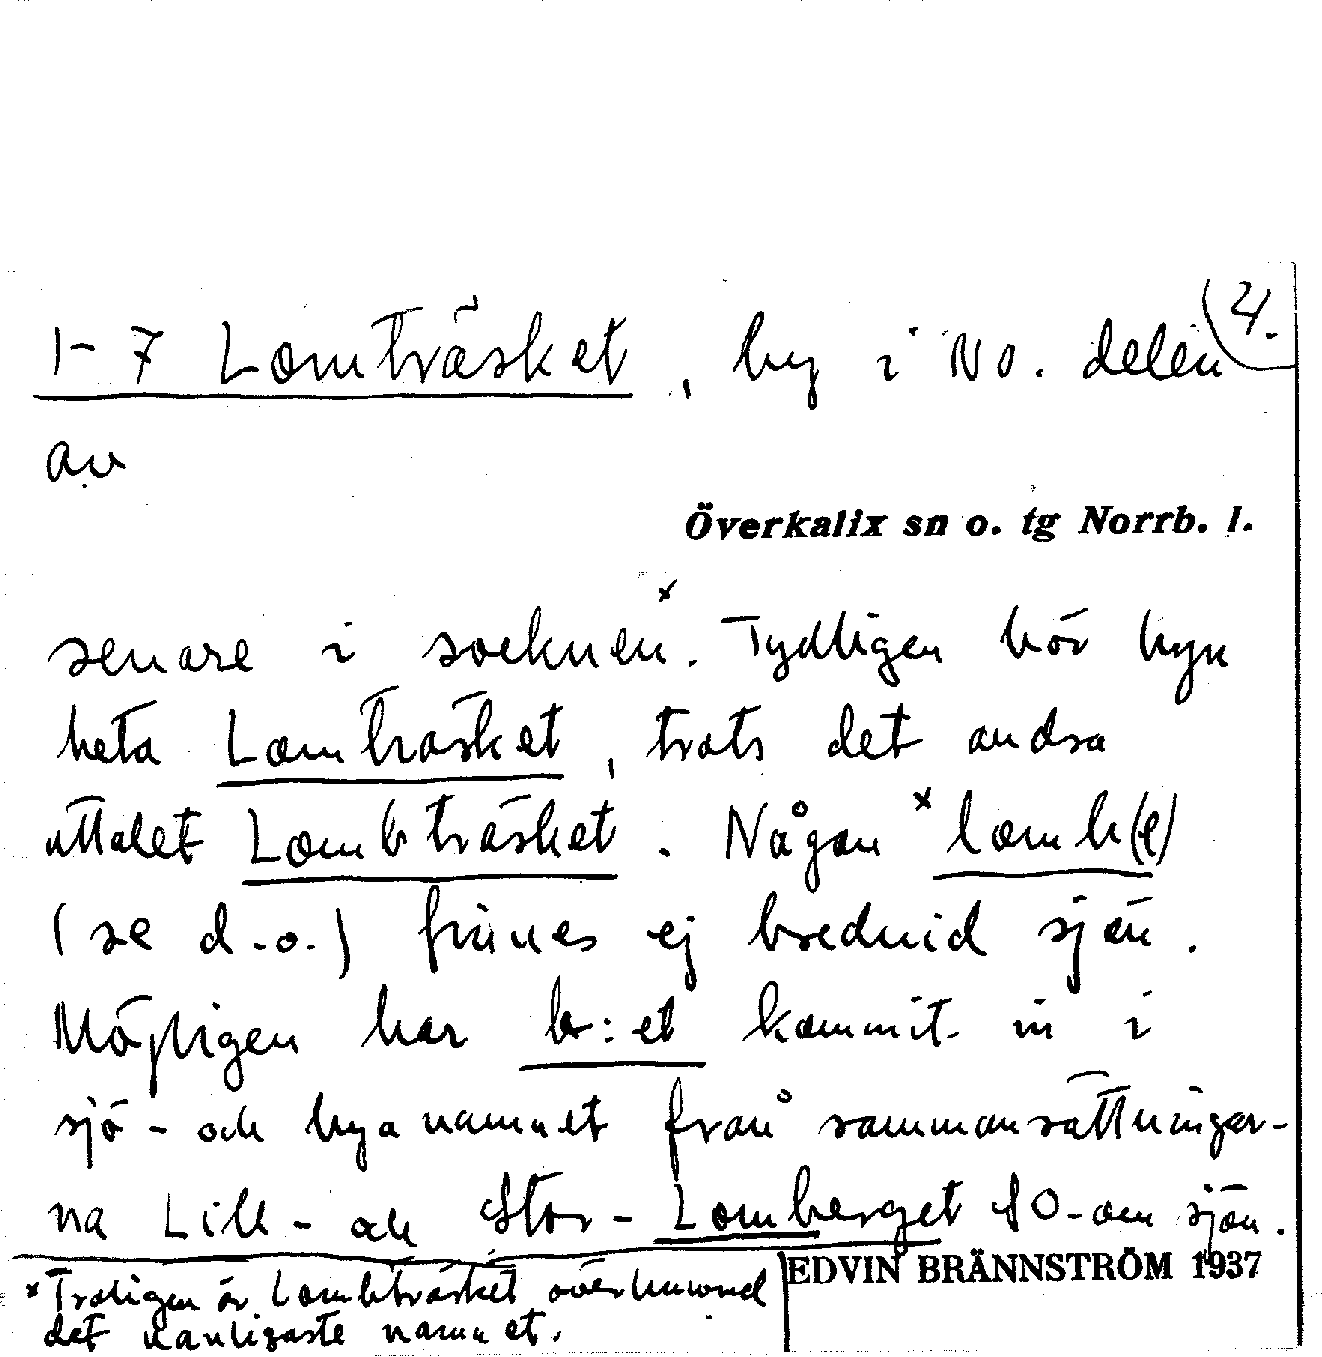 4.
1-7 Lomträsket, by i NO. delen
av
Överkalix sn o. tg Norrb. l.
senare i socknen.x Tydligen bör byn
heta Lomträsket, trots det andra
uttalet Lombträsket. Någon x lomb(e)
(se d.o.) finnes ej bredvid sjön.
Möjligen har b:et kommit in i
sjö- och byanamnet från sammansättningar-
na Lill- och Stor-Lomberget SO-om sjön.
x Troligen är Lombträsket överhuvud
det vanligaste namnet.
EDVIN BRÄNNSTRÖM 1937